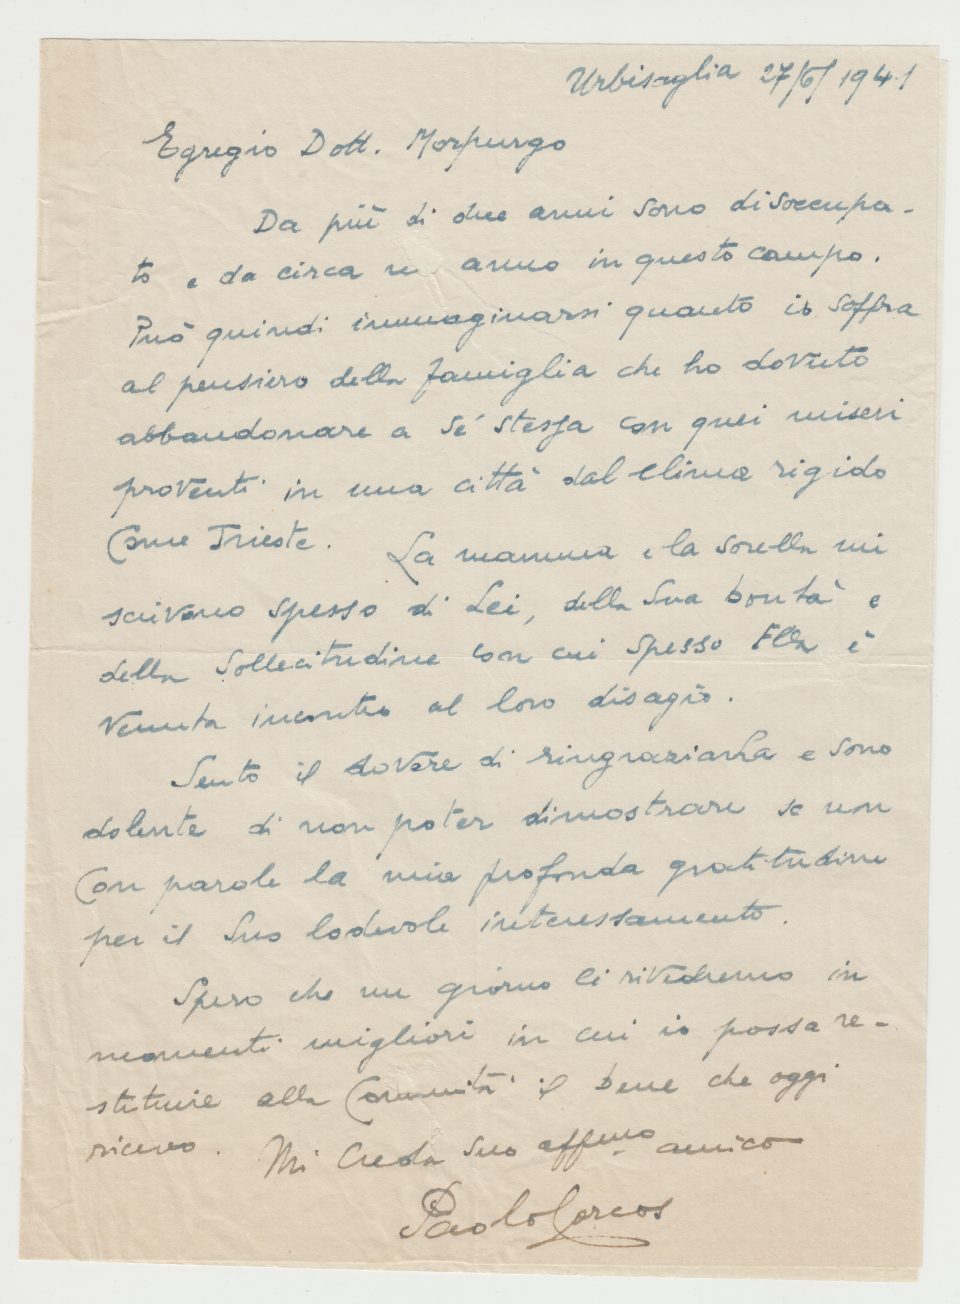 Urbisaglia 27/6/1941
Egregio Dott. Morpurgo
Da più di due anni sono disoccupa-
to e da circa un anno in questo campo.
Può quindi immaginarsi quanto io soffra
al pensiero della famiglia che ho dovuto
abbandonare a sé stessa con quei miseri
proventi in una città dal clima rigido
come Trieste. La mamma e la sorella mi
scrivono spesso di Lei, della Sua bontà e
della sollecitudine con cui spesso Ella è
venuta incontro al loro disagio.
Sento il dovere di ringraziarLa e sono
dolente di non poter dimostrare se non
con parole la mia profonda gratitudine
per il Suo lodevole interessamento.
Spero che un giorno ci rivedremo in
momenti migliori in cui io possa re-
stituire alla Comunità il bene che oggi
ricevo. Mi creda Suo affmo amico
Paolo Corcos